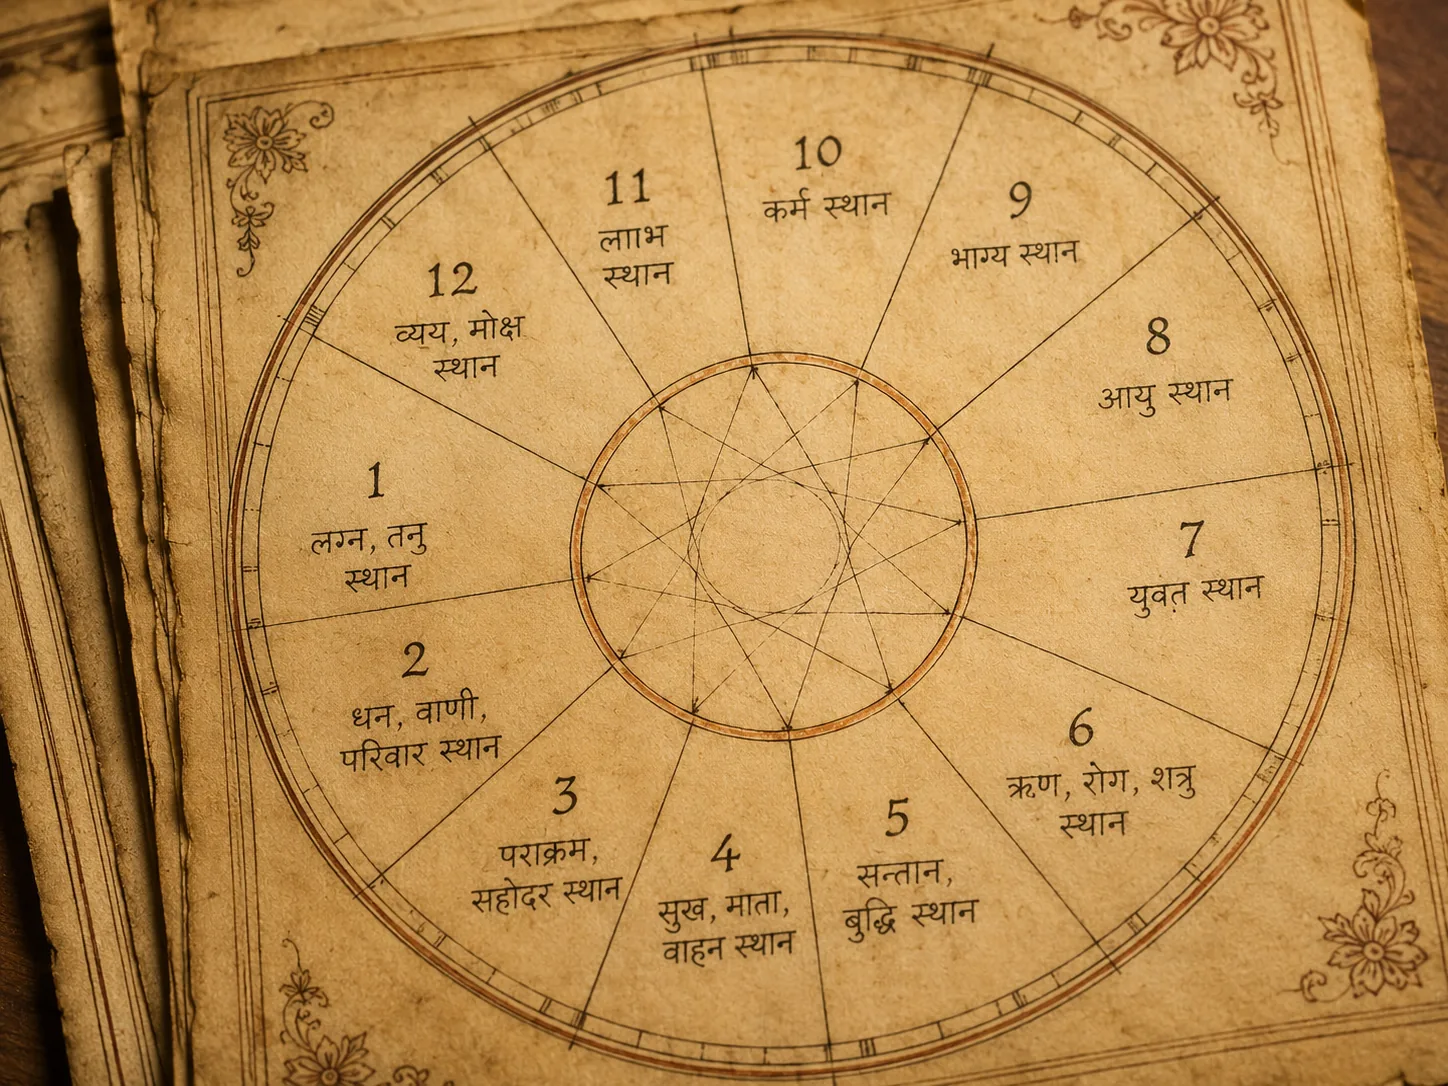 1
लग्न, तनु
स्थान
2
धन, वाणी,
परिवार स्थान
3
पराक्रम,
सहोदर स्थान
4
सुख, माता,
वाहन स्थान
5
सन्तान,
बुद्धि स्थान
6
ऋण, रोग, शत्रु
स्थान
7
युवत़ स्थान
8
आयु स्थान
9
भाग्य स्थान
10
कर्म स्थान
11
लााभ
स्थान
12
व्यय, मोक्ष
स्थान